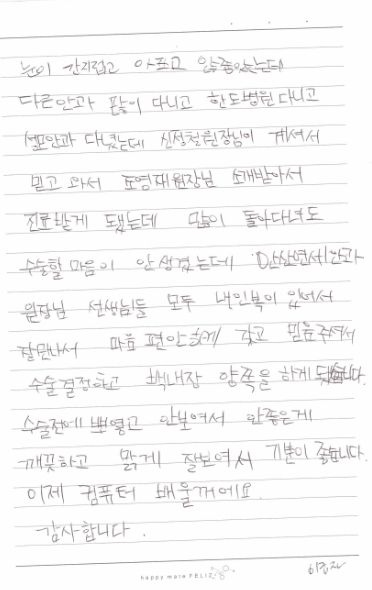 눈이 간지럽고 아프고 안좋았는데
다른안과 많이 다니고 한도병원다니고
다녔는데 신성철원장님이 계셔서
믿고 와서 조영재원장님 소개받아서
진료받게 됐는데 많이 돌아다녀도
수술할마음이 안생겼는데 안산연세안과
원장님 선생님들 모두 내인복이 있어서
잘만나서 마음 편안하게 갖고 믿음주셔서
수술결정하고 백내장 양쪽을 하게됐습니다.
수술전에 뿌옇고 안보여서 안좋은게
깨끗하고 맑게 잘보여서 기분이 좋습니다.
이제 컴퓨터 배울꺼에요.
감사합니다.
happy mate FELIZ